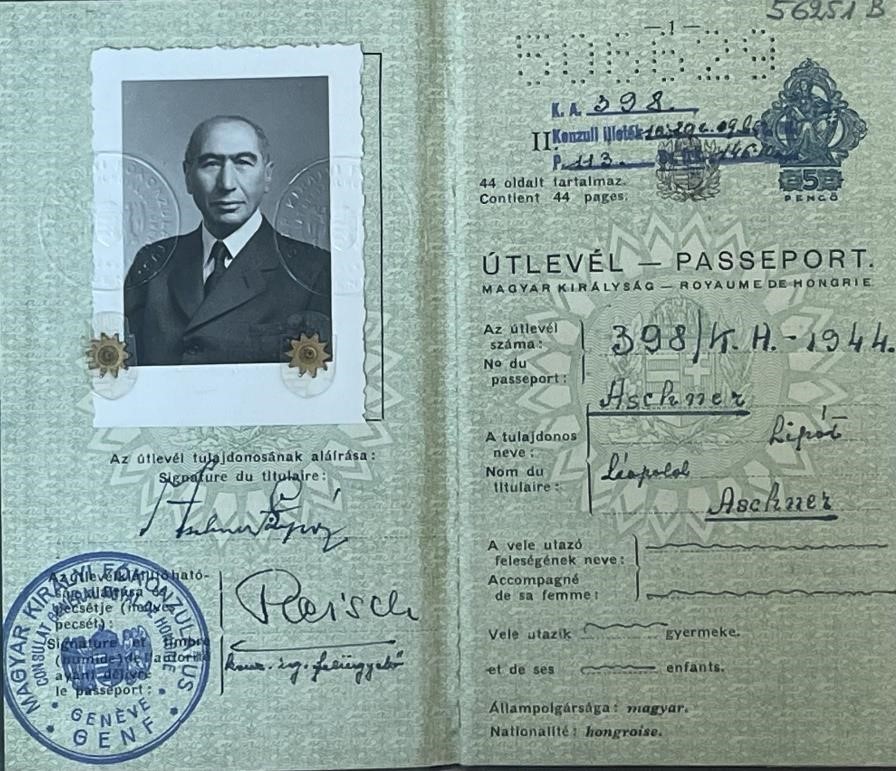 Az útlevél tulajdonosának aláírása:
Signature du titulaire:
Aschner Lipót
pecsétje (
pecsét):
Signature et timbre
(humide) de l'autorité
ayant délivré
le passeport:
Reisch
MAGYAR KIRÁLYI FŐKONZULÁTUS
CONSULAT GÉNÉRAL ROYAL DE HONGRIE
GENÈVE
GENF
56251 B
— 1 —
506629
K. A. 398.
II. Konzuli illeték
P. 113.
5
PENGŐ
44 oldalt tartalmaz.
Contient 44 pages.
ÚTLEVÉL — PASSEPORT.
MAGYAR KIRÁLYSÁG — ROYAUME DE HONGRIE
Az útlevél
száma:
398/K. H. - 1944.
No du
passeport:
Aschner
A tulajdonos
neve:
Lipót
Nom du
titulaire:
Léopold
Aschner
A vele utazó
feleségének neve:
Accompagné
de sa femme:
Vele utazik gyermeke.
et de ses enfants.
Állampolgársága: magyar.
Nationalité: hongroise.